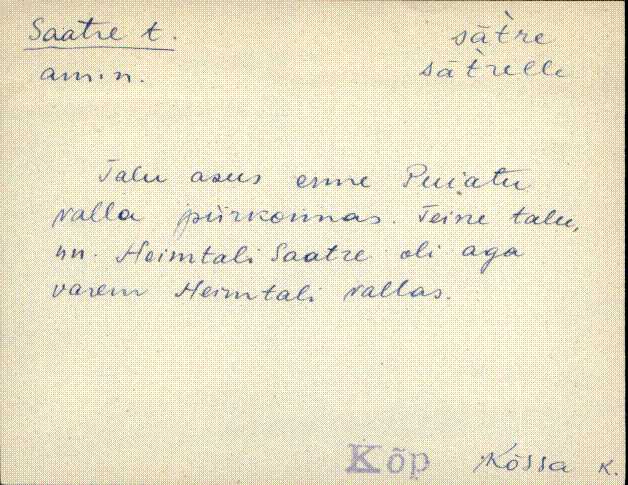 Saatre t.
sāt̀re
amin.
sāt̀relle
Talu asus enne Puiatu
valla piirkonnas. Teine talu,
nn. Heimtali Saatre oli aga
varem Heimtali vallas.
Kõp
Kõssa K.